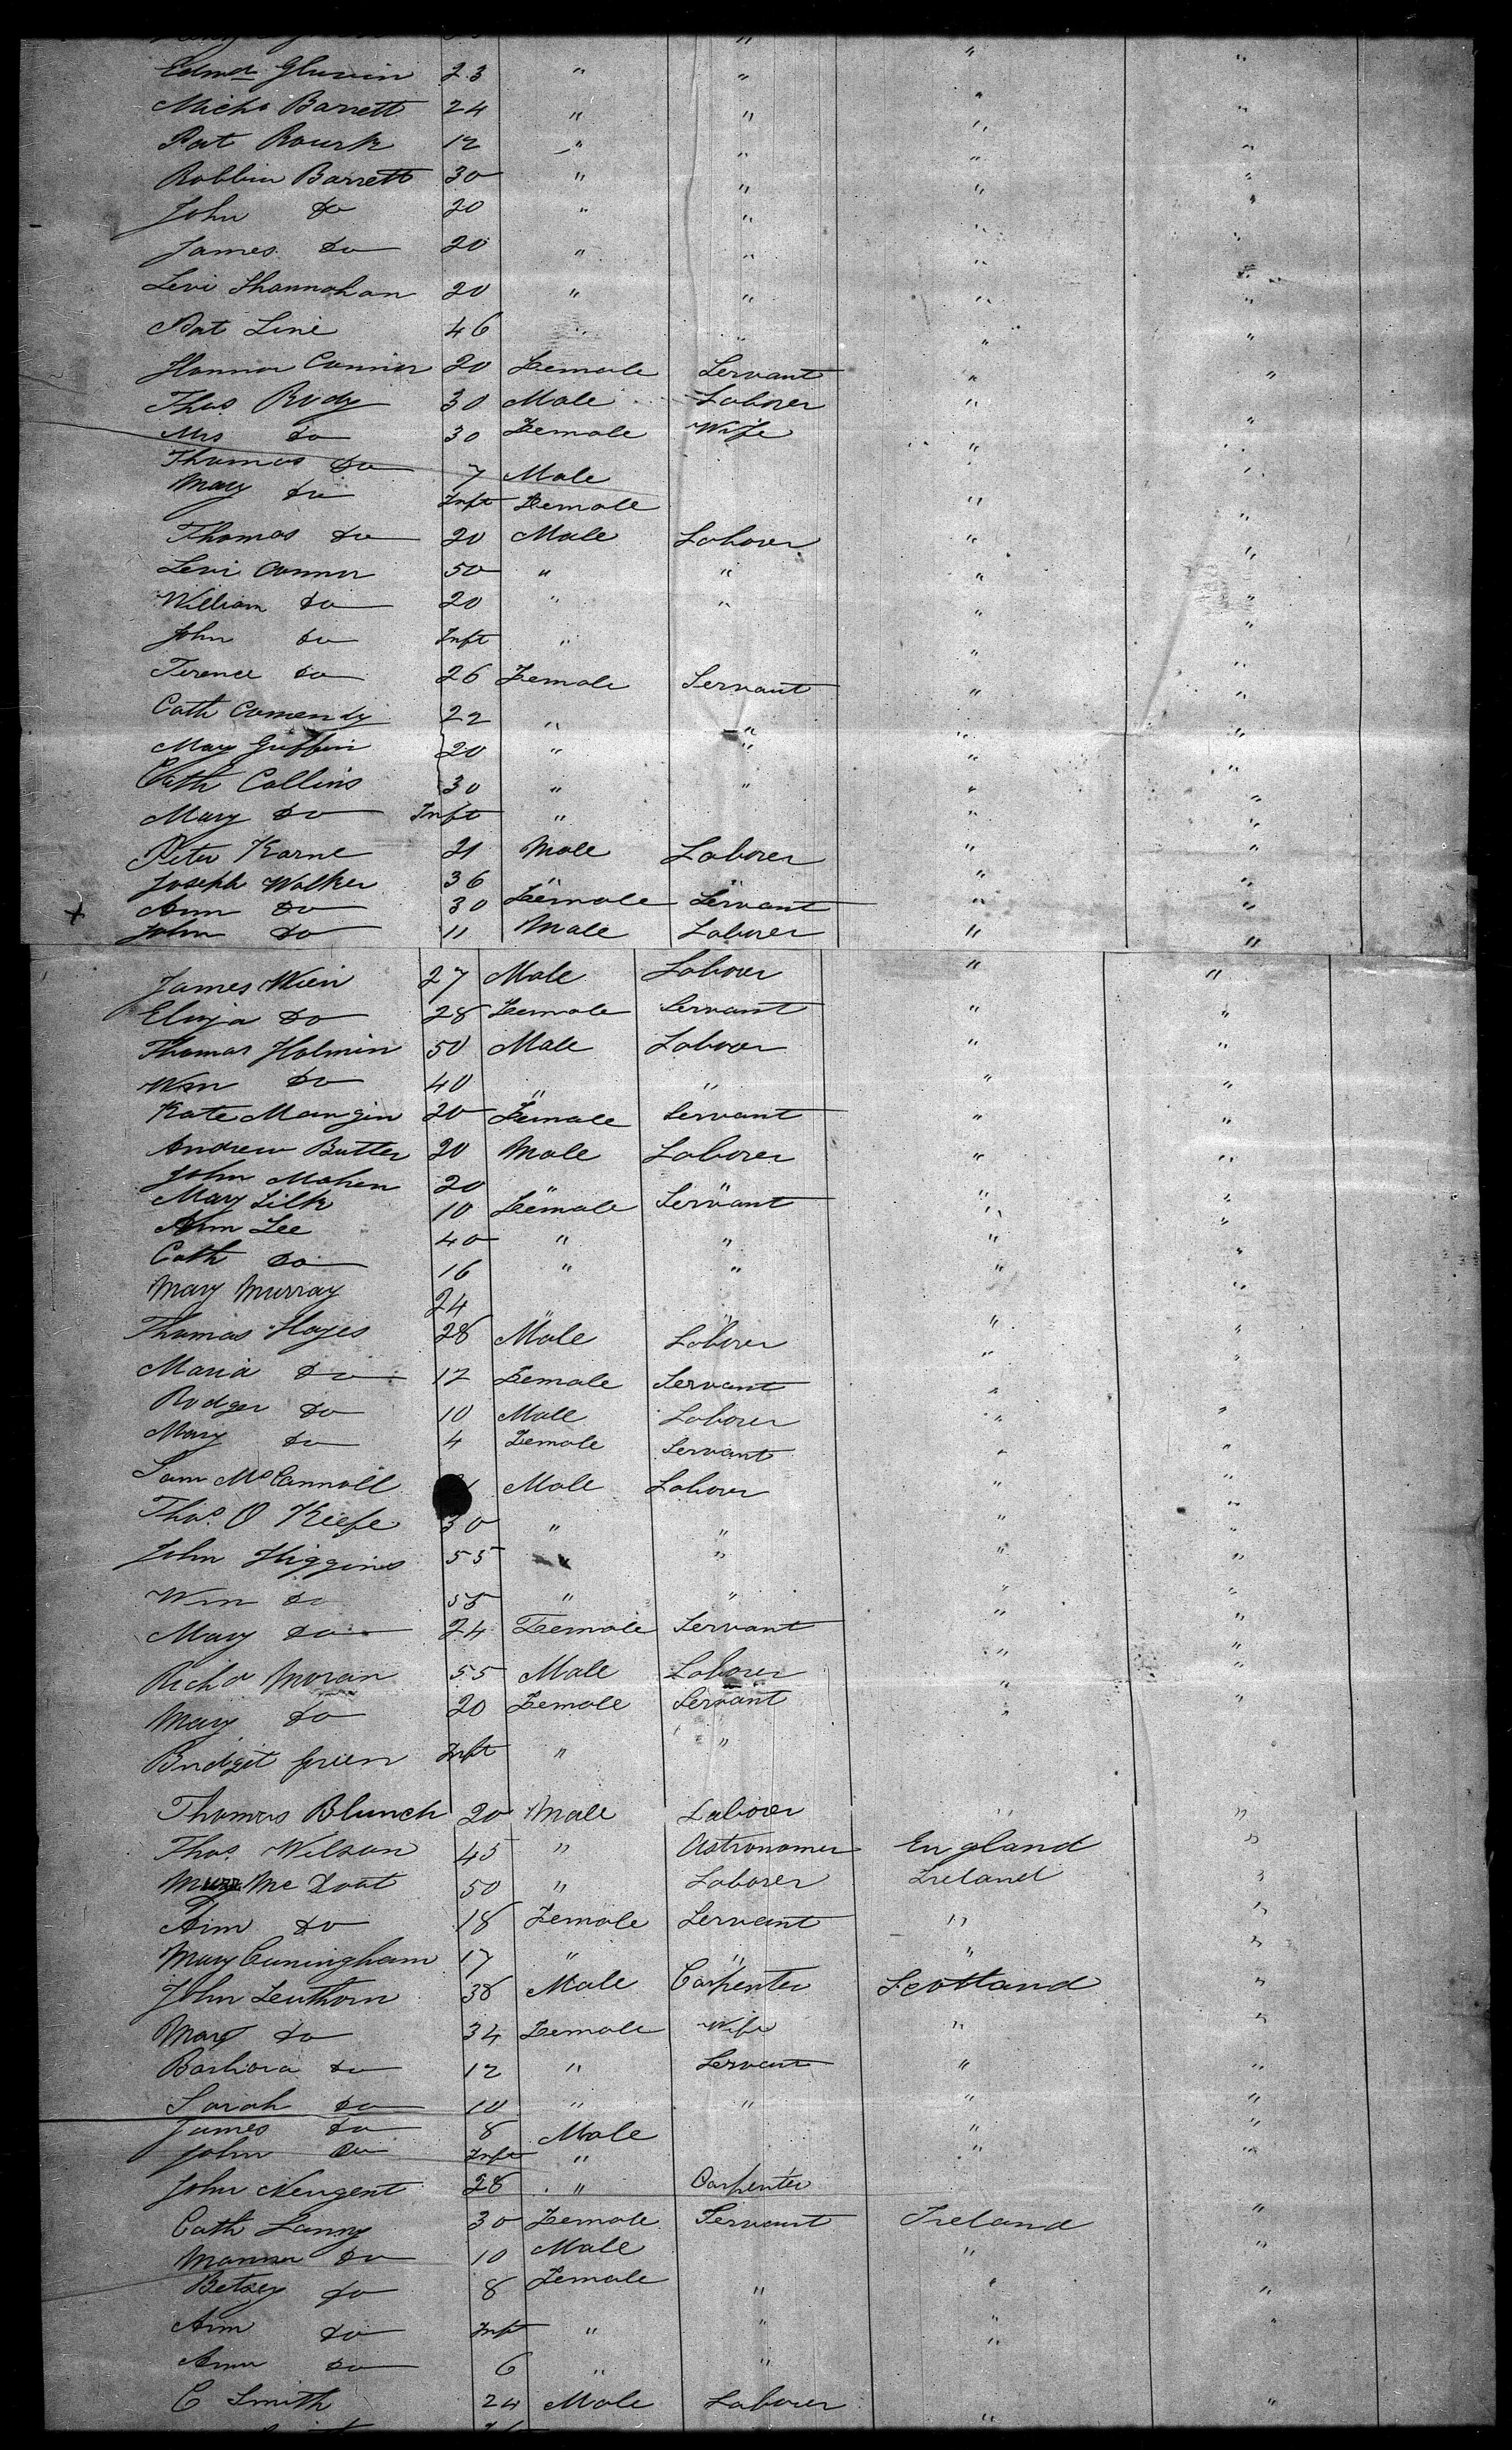 Edmd Gluvin 23 " " " "
Micho Barrett 24 " " " "
Pat Rourk 12 " " " "
Robbin Barrett 30 " " " "
John Do 20 " " " "
James Do 20 " " " "
Levi Shannohan 20 " " " "
Pat Line 46 " " " "
Hannor Connor 20 Female Servant " "
Thos Rudy 30 Male Laborer "
Mrs Do 30 Female Wife " "
Thomas Do 7 Male " "
Mary Do Inft Female " "
Thomas Do 20 Male Laborer " "
Levi Connor 50 " " " "
William Do 20 " " " "
John Do Inft " " "
Terence Do 26 Female Servant " "
Cath Comendy 22 " " " "
Mary Griffin 20 " " " "
Cath Collins 30 " " " "
Mary Do Inft " " "
Peter Karne 21 Male Laborer " "
Joseph Walker 36 " " " "
Ann Do 30 Female Servant " "
John Do 11 Male Laborer " "
James Wien 27 Male Laborer " "
Eliza Do 28 Female Servant " "
Thomas Holmin 50 Male Laborer " "
Wm Do 40 " " " "
Kate Mangin 20 Female Servant " "
Andrew Butler 20 Male Laborer " "
John Mahen 20 " " " "
Mary Silk 10 Female Servant " "
Ann Lee 40 " " " "
Cath Do 16 " " " "
Mary Murray 24 " " "
Thomas Hayes 28 Male Laborer " "
Maria Do 12 Female Servant " "
Rodger Do 10 Male Laborer " "
Mary Do 4 Female Servant " "
Sam McConnoll Male Laborer " "
Thos. O Kiefe 30 " " " "
John Higgins 55 " " " "
Wm Do 55 " " " "
Mary Do 24 Female Servant " "
Richd Moran 55 Male Laborer " "
Mary Do 20 Female Servant " "
Bridget Green Inft " "
Thomas Blunch 20 Male Laborer " "
Thos. Wilson 45 " Astronomer England "
Mc Doat 50 " Laborer Ireland "
Ann Do 18 Female Servant " "
Mary Cuningham 17 " " " "
John Leuthorn 38 Male Carpenter Scotland "
Mary Do 34 Female Wife " "
Barbara Do 12 " Servant " "
Sarah Do 10 " " " "
James Do 8 Male " "
John Do Inft " " "
John Neugent 28 " Carpenter
Cath Lanny 30 Female Servant Ireland "
Do 10 Male " "
Betsey Do 8 Female " " "
Ann Do Inft " " " "
Ann Do 6 " " "
C Smith 24 Male Laborer " "